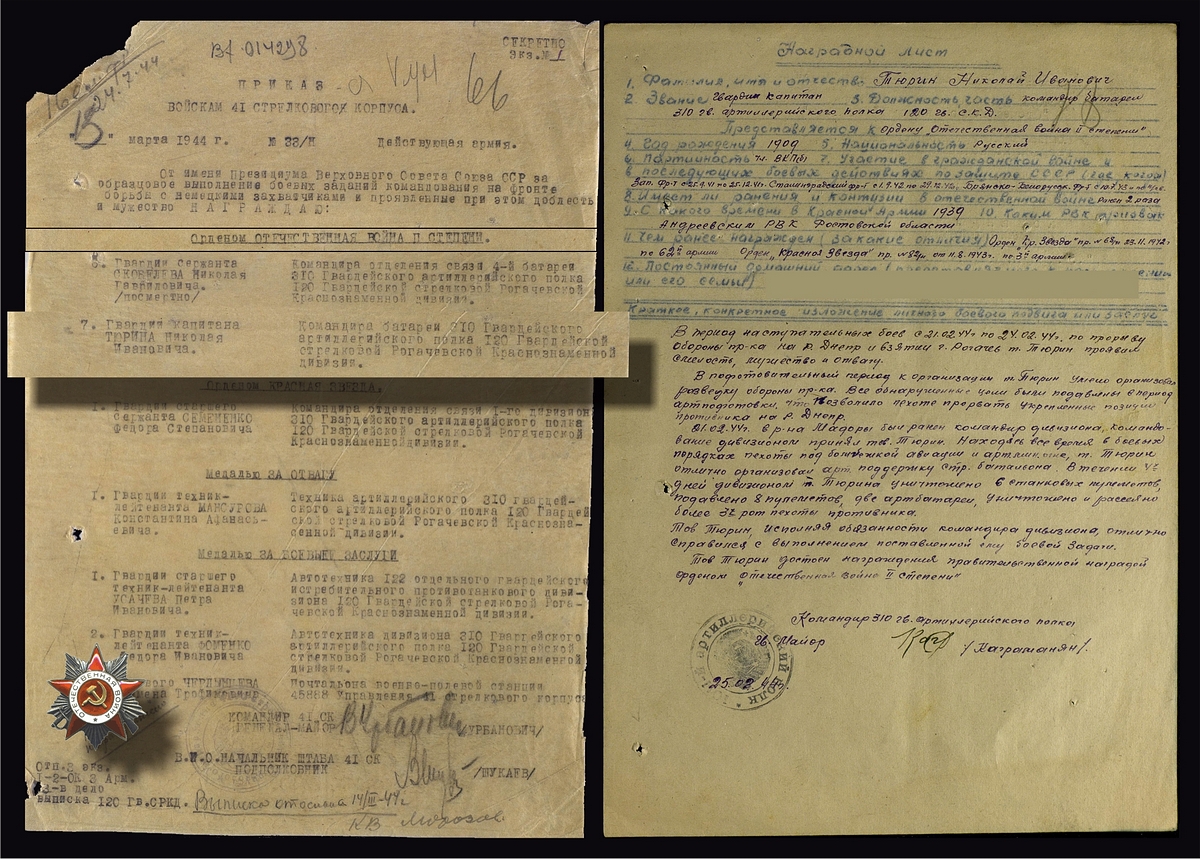 ВХ 014298
СЕКРЕТНО
Экз.№ 1
24.3.44
П Р И К А З
66
ВОЙСКАМ 41 СТРЕЛКОВОГО КОРПУСА.
"13" марта 1944 г. № 33/Н Действующая армия.
От имени Президиума Верховного Совета Союза ССР за
образцовое выполнение боевых заданий командования на фронте
борьбы с немецкими захватчиками и проявленные при этом доблесть
и мужество Н А Г Р А Ж Д А Ю:
Орденом ОТЕЧЕСТВЕННАЯ ВОЙНА П СТЕПЕНИ.
6. Гвардии сержанта Командира отделения связи 4-й батареи
СКОБЕЛЕВА Николая 310 Гвардейского артиллерийского полка
Гавриловича. 120 Гвардейской стрелковой Рогачевской
/посмертно/ Краснознаменной дивизии.
7. Гвардии капитана Командира батареи 310 Гвардейского
ТЮРИНА Николая артиллерийского полка 120 Гвардейской
Ивановича. стрелковой Рогачевской Краснознаменной
дивизии.
Орденом КРАСНАЯ ЗВЕЗДА.
1. Гвардии старшего Командира отделения связи 1-го дивизиона
сержанта СЕМЕНЕНКО 310 Гвардейского артиллерийского полка
Федора Степановича 120 Гвардейской стрелковой Рогачевской
Краснознаменной дивизии.
Медалью ЗА ОТВАГУ
1. Гвардии техник- Техника артиллерийского 310 гвардей-
лейтенанта МАНСУРОВА ского артиллерийского полка 120 Гвардей
Константина Афанась- ской стрелковой Рогачевской Краснозна-
евича. менной дивизии.
Медалью ЗА БОЕВЫЕ ЗАСЛУГИ
1. Гвардии старшего Автотехника 122 отдельного гвардейского
техник-лейтенанта истребительного противотанкового диви-
УСАЧЕВА Петра зиона 120 Гвардейской стрелковой Рога-
Ивановича. чевской Краснознаменной дивизии.
2. Гвардии техник- Автотехника дивизиона 310 Гвардейского
лейтенанта ФОМЕНКО артиллерийского полка 120 Гвардейской
Федора Ивановича стрелковой Рогачевской Краснознаменной
дивизии.
Почтальона военно-полевой станции
45888 Управления 41 стрелкового корпуса
ОТЕЧЕСТВЕННАЯ ВОЙНА
КОМАНДИР 41 СК
ГЕНЕРАЛ-МАЙОР /УРБАНОВИЧ/
В.И.О.НАЧАЛЬНИК ШТАБА 41 СК
ПОДПОЛКОВНИК /ШУКАЕВ/
Отп.3 экз.
1-2-ОК 3 Арм.
3-в дело
выписка 120 Гв.СРКД. Выписка отослана 14/III-44г
Наградной лист
1. Фамилия, имя и отчество Тюрин Николай Иванович
2. Звание Гвардии капитан 3. Должность, часть командир батареи
310 гв. артиллерийского полка 120 гв. С.К.Д.
Представляется к Ордену „Отечественная война II степени"
4. Год рождения 1909 5. Национальность Русский
6. Партийность чл. ВКП(б) 7. Участие в гражданской войне и
последующих боевых действиях по защите СССР (где когда)
8. Имеет ли ранения и контузии в отечественной войне Ранен 2 раза
9. С какого времени в Красной Армии 1939 10. Каким РВК призван
Андреевским РВК Ростовской области
11. Чем ранее награжден (за какие отличия) Орден „Кр. Звезда"
по 62й армии Орден „Красная Звезда" от 11.8.1943г. по 3й армии
12. Постоянный домашний адрес
или его семьи)
Краткое, конкретное изложение личного боевого подвига или заслуг
В период наступательных боев с 21.02.44г по 24.02.44г. по прорыву
обороны пр-ка на р. Днепр и взятии г. Рогачев т. Тюрин проявил
смелость, мужество и отвагу.
В подготовительный период к организации т. Тюрин умело организовал
разведку обороны пр-ка. Все обнаруженные цели были подавлены в период
артподготовки, что позволило пехоте прорвать укрепленные позиции
противника на р. Днепр.
01.02.44г в р-на Мадоры был ранен командир дивизиона, командо-
вание дивизионом принял тов. Тюрин. Находясь все время в боевых
порядках пехоты под бомбежкой авиации и артминогня, т. Тюрин
отлично организовал арт. поддержку стр. батальона. В течении 4х
дней дивизионом т. Тюрина уничтожено 6 станковых пулеметов,
подавлено 8 пулеметов, две артбатареи, уничтожено и рассеяно
более 3х рот пехоты противника.
Тов Тюрин, исполняя обязанности командира дивизиона, отлично
справился с выполнением поставленной ему боевой задачи.
Тов Тюрин достоен награждения правительственной наградой
орденом „Отечественная война II степени"
Командир 310 гв. артиллерийского полка
Гв. Майор /Каграманян/.
25.02.44г.